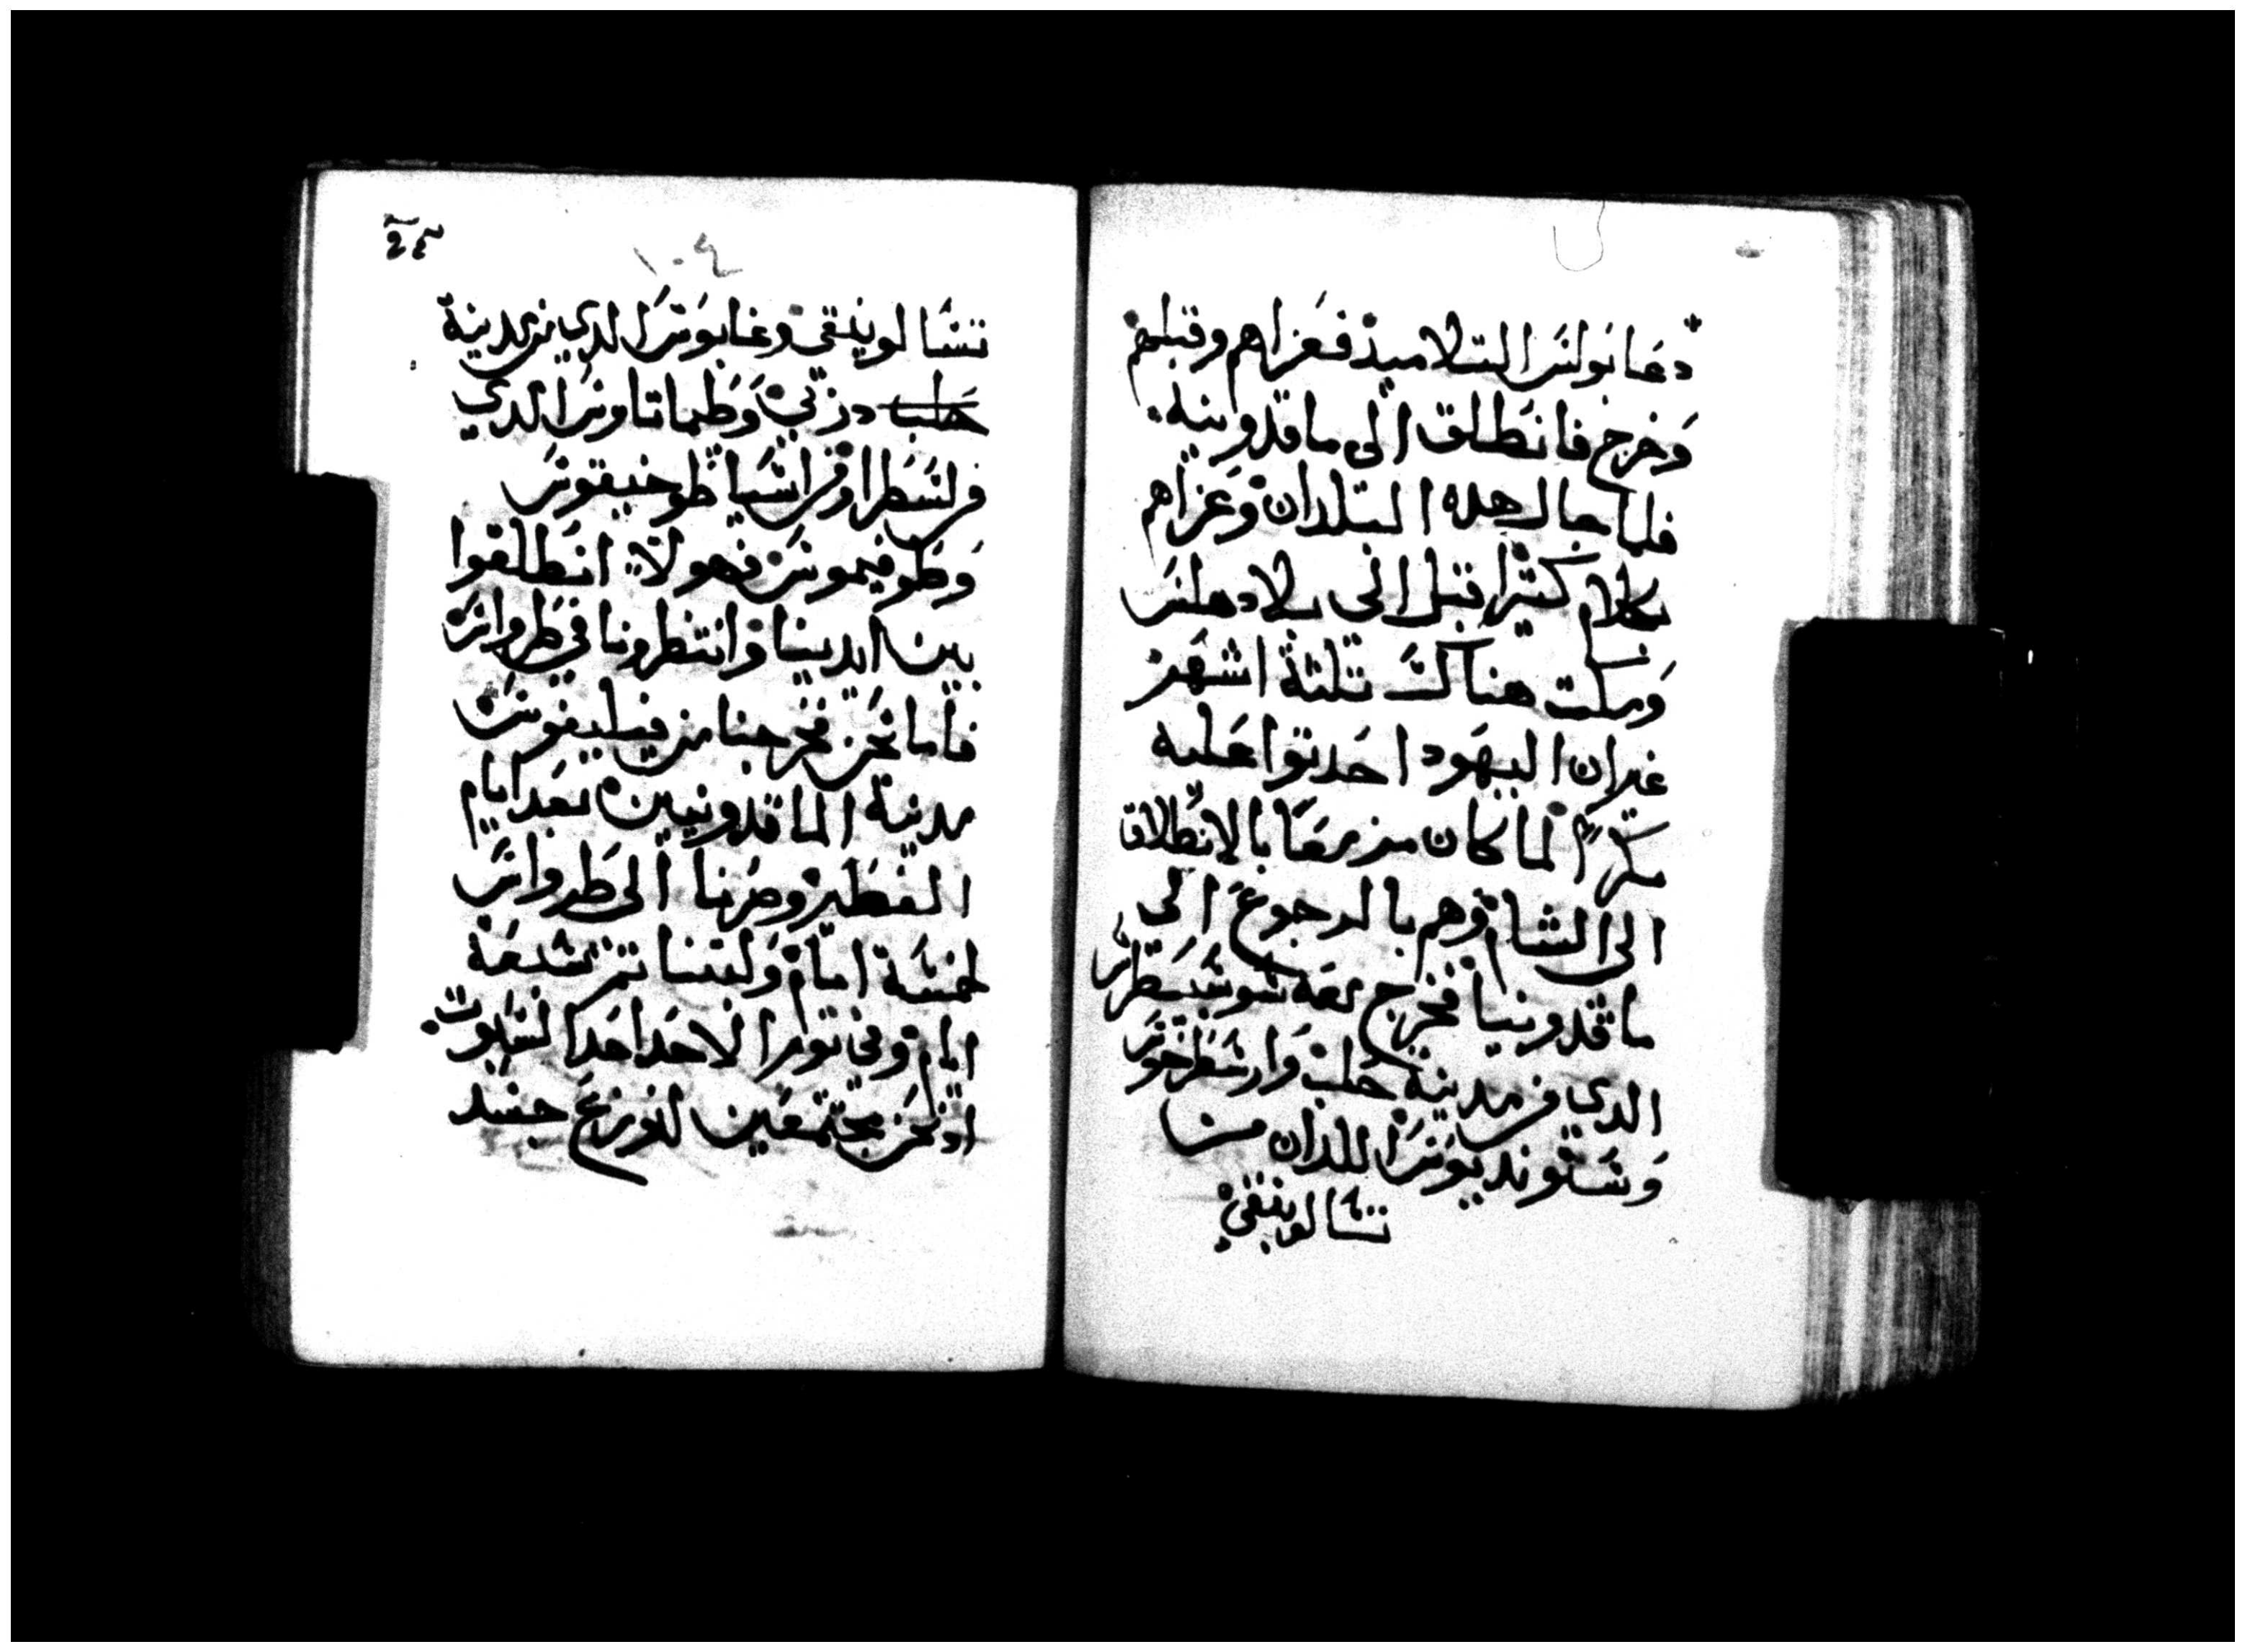 دعا بولس التلاميذ فعزاهم وقبلهم
وخرج فانطلق الى ماقدونيه.
فلما جال هده البلدان وعزاهم
بكلام كتير اقبل الى بلاد هلس
ومكت هناك تلثة اشهر
غير ان اليهود احدتوا عليه
مكرا لما كان مزمعا بالانطلاق
الى الشام وهم بالرجوع الى
ماقدونيا فخرج معه سوسيطرس
الدي من مدينة حلب وارسطرخوس
وسقونديوس اللدان من
تسالونيقي
١٠٤
تسالونيقي وغايوس الدي من مدينة
حلب درني وطيماتاوس الدي
من لسطرا ومن اسيا طوخيقوس
وطروفيموس فهولاء انطلقوا
بين ايدينا وانتظرونا في طرواس
فاما نحن فخرجنا من فيليفوس
مدينة الماقدونيين بعد ايام
الفطير وصرنا الى طرواس
لخمسة ايام ولبتنا تم سبعة
ايام وفي يوم الاحد احد السابوت.
اد نحن مجتمعين لنوزع جسد